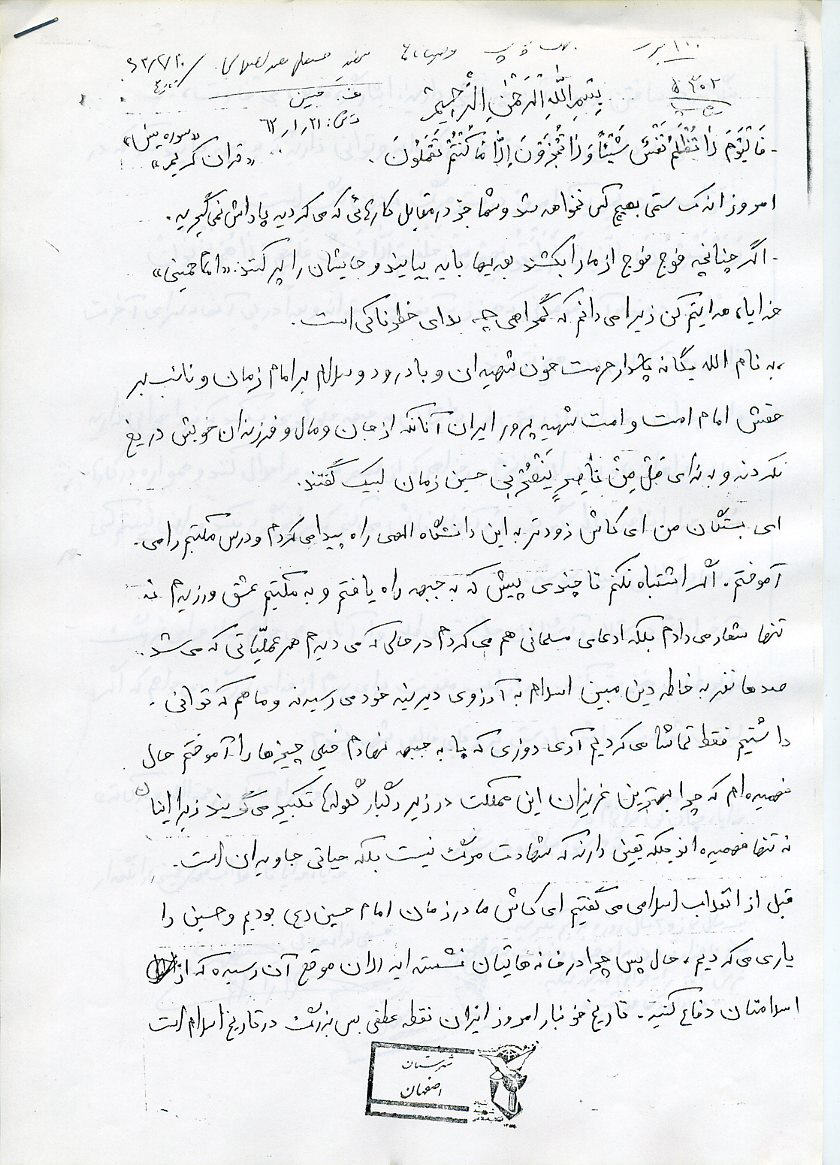 بِسْمِ اللَّهِ الرَّحْمٰنِ الرَّحِیمِ
- فَالْیَوْمَ لا تُظْلَمُ نَفْسٌ شَیْئاً وَ لا تُجْزَوْنَ اِلاَّ ما کُنْتُمْ تَعْمَلُونَ. «سوره یس» «قرآن کریم»
امروز اندک ستمی بهیچ کس نخواهد شد و شما جز در مقابل کارهائی که می کردید پاداش نمی گیرید.
- اگر چنانچه فوج فوج از ما را بکشند بعدیها باید بیایند و جایشان را پر کنند. «امام خمینی»
خدایا، هدایتم کن زیرا می دانم که گمراهی چه بلای خطرناکی است.
به نام الله یگانه پاسدار حرمت خون شهیدان و با درود و سلام بر امام زمان و نائب بر
حقش امام امت و امت شهید پرور ایران آنانکه از جان و مال و فرزندان خویش دریغ
نکردند و به ندای هَلْ مِنْ ناصِرٍ یَنْصُرُنِی حسین زمان لبیک گفتند.
ای بستگان من ای کاش زودتر به این دانشگاه الهی راه پیدا می کردم و درس مکتبم را می-
آموختم. اگر اشتباه نکنم تا چندی پیش که به جبهه راه یافتم و به مکتبم عشق ورزیدم نه
تنها شعار می دادم بلکه ادعای مسلمانی هم می کردم در حالی که می دیدم هر عملیّاتی که می شد
صدها نفر به خاطر دین مبین اسلام به آرزوی دیرینه خود می رسیدند و ما هم که توانی-
داشتیم فقط تماشا می کردیم آری روزی که پا به جبهه نهادم خیلی چیزها را آموختم حال
فهمیده ام که چرا بهترین عزیزان این مملکت در زیر رگبار گلوله ها تکبیر می گویند زیرا اینان
نه تنها فهمیده اند بلکه یقین دارند که شهادت مرگ نیست بلکه حیاتی جاویدان است.
قبل از انقلاب اسلامی می گفتیم ای کاش ما در زمان امام حسین (ع) بودیم و حسین را
یاری می کردیم، حال پس چرا در خانه هایتان نشسته اید الان موقع آن رسیده که از
اسلامتان دفاع کنید. تاریخ خونبار امروز ایران نقطه عطفی بس بزرگ در تاریخ اسلام است
شهرستان
اصفهان